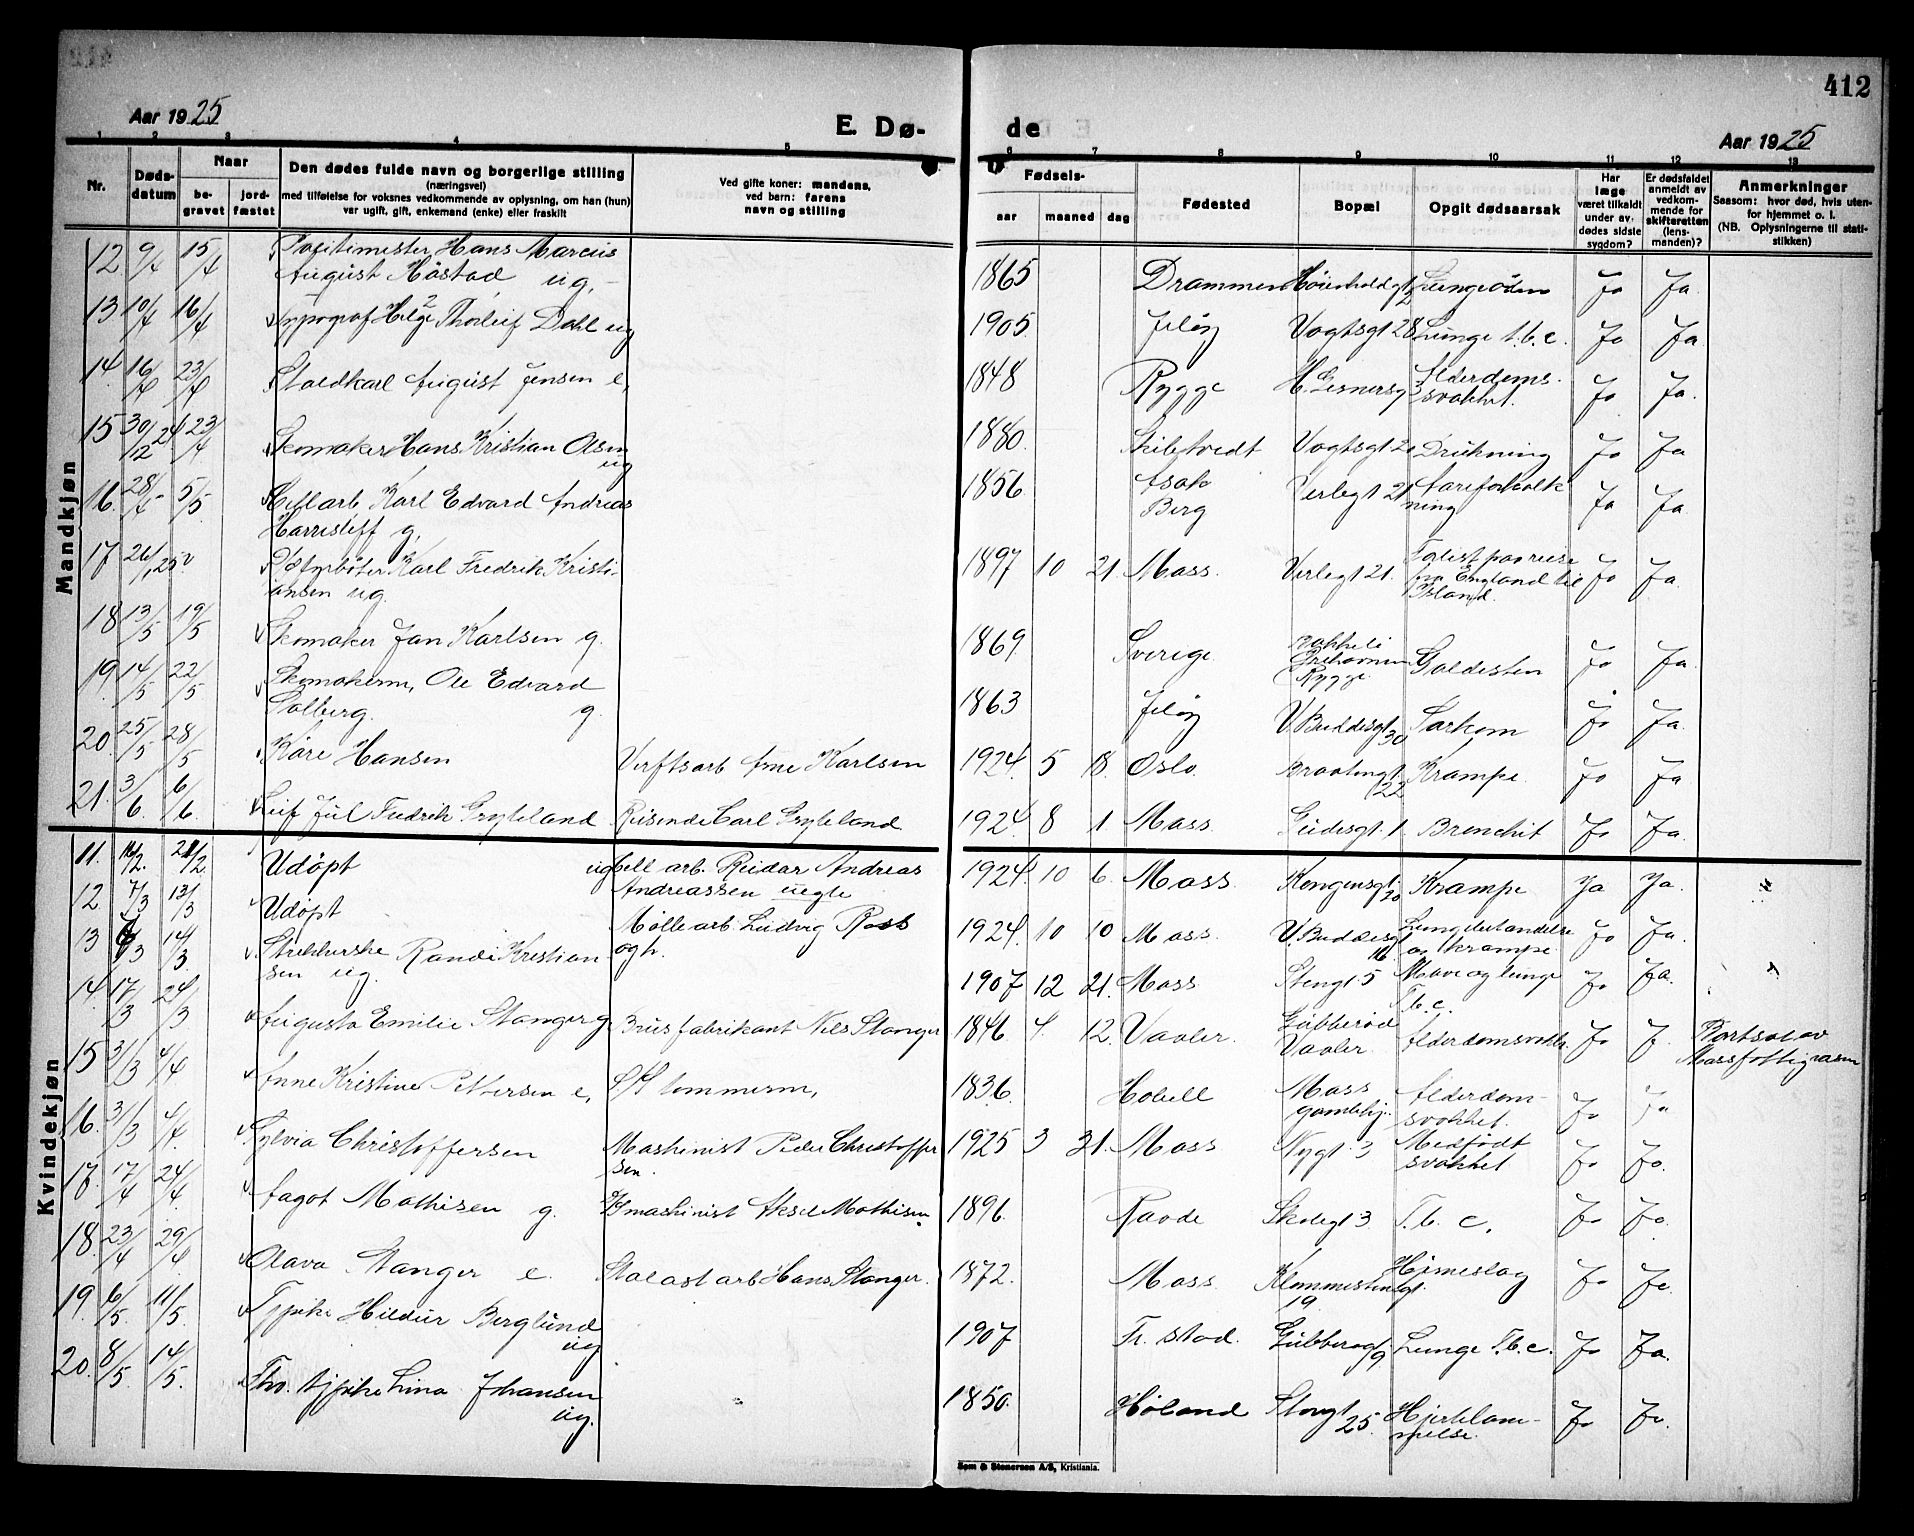 412
Aar 1925
E. Dø-
de
Aar 1925
1 2 3 4 5
6 7 8 9 10 11 12 13
Nr.
Døds-
datum
Naar
be-
gravet
jord-
fæstet
Den dødes fulde navn og borgerlige stilling
(næringsvei)
med tilføielse for voksnes vedkommende av oplysning, om han (hun)
var ugift, gift, enkemand (enke) eller fraskilt
Ved gifte koner: mandens,
ved barn: farens
navn og stilling
Fødsels-
aar
maaned
dag
Fødested
Bopæl
Opgit dødsaarsak
Har
læge
været tilkaldt
under av-
dødes sidste
sygdom?
Er dødsfaldet
anmeldt av
vedkom-
mende for
skifteretten
(lens-
manden)?
Anmerkninger
Saasom: hvor død, hvis uten-
for hjemmet o. l.
(NB. Oplysningerne til stati-
stikken)
Mandkjøn
12 9/4 15/4 Hans Marcus
August Høstad ug.
1865 Drammen Ja Ja
13 10/4 16/4 Typograf Helge Thorleif Dahl ug
1905 Jeløy Vogtsgt 28 Lunge t.b.c. Ja Ja
14 16/4 23/4 Staldkarl August Jensen e.
1848 Rygge Alderdoms-
svakhet. Ja Ja.
15 30/12 24 23/4 Skomaker Hans Kristian Olsen
ug
1880 Skiptvedt Vogtsgt 20 Drukning Ja Ja
16. 28/4 5/5 Cellarb Karl Edvard Andreas
g.
1856 Asak
Berg Verlegt 21 Aareforkalk
ning Ja Ja
17 26/1 25 Karl Fredrik Kristi-
ansen ug.
1897 10 21. Moss. Verlegt 21. Forlist paa reise
fra England til
Island. Ja Ja.
18 13/5 19/5 Skomaker Jan Karlsen g.
1869 Sverige Bakkeli
Rygge Galdesten Ja Ja.
19. 14/5 22/5 Skomakerm, Ole Edvard
Solberg. g.
1863 Jeløy V. Buddesgt 30 Sarkom Ja Ja.
20. 25/5 28/5 Kåre Hansen Verftsarb Arne Karlsen
1924. 5 18. Oslo. Braatengt 22 Krampe. Ja Ja
21. 3/6 6/6 Leif Jul Fredrik Gryteland Reisende Carl Gryteland
1924 8 1 Moss Gudesgt. 1 Bronchit Ja Ja.
Kvindekjøn
11. 16/2. 21/2. Udøpt ug. Cell arb. Reidar Andreas
Andreassen uegte
1924. 10 6. Moss. Kongensgt 20 Krampe Ja Ja.
12 7/3 13/3 Udøpt Møllearb. Ludvig Ross
1924. 10 10 Moss. V. Buddesgt 16 Lungebetændelse
og krampe. Ja Ja.
13 6/3 14/3 Randi Kristian
sen ug.
1907 12 21. Moss Stengt 5 Mave og lunge
T.b.c. Ja Ja.
14. 17/3 24/3 Augusta Emilie Stanger g. Brusfabrikant Nils Stanger
1846 4. 12. Vaaler. Gubberød
Vaaler. Alderdomsvakh. Ja J. Bortsat av
Mossfattigvæsen
15 31/3 4/4 Anne Kristine Pettersen e, tømmerm,
1836. Hobøll Moss
gamlehj. Alderdom-
svakhet. Ja Ja
16. 31/3 4/4 Sylvia Christoffersen Maskinist Peder Christoffer
sen.
1925 3 31. Moss Nygt. 3 Medfødt
svakhet Ja Ja.
17. 17/4 24/4 Aagot Mathisen g. maskinist Aksel Mathisen
1896. Raade Skolegt 3. T.b.c. Ja Ja.
18. 23/4 29/4 Olava Stanger e. Hans Stanger.
1872. Moss. 19. Hjerneslag Ja Ja.
19. 6/5 11/5. Hildur Berglund
ug
1907 Fr. stad. 9 Lunge T.b.c. Ja Ja.
20. 8/5. 14/5. Lina Johansen
ug.
1850. Høland Storgt 25. Hjertelam-
melse. Ja Ja.
Sem & Stenersen A/S, Kristiania.